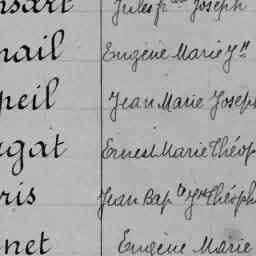 nsart Jules fcois Joseph
nail Eugène Marie Jh
peil Jean Marie Joseph
gat Ernest Marie Théop
ris Jean Bapte Jph Théoph
net Eugène Marie